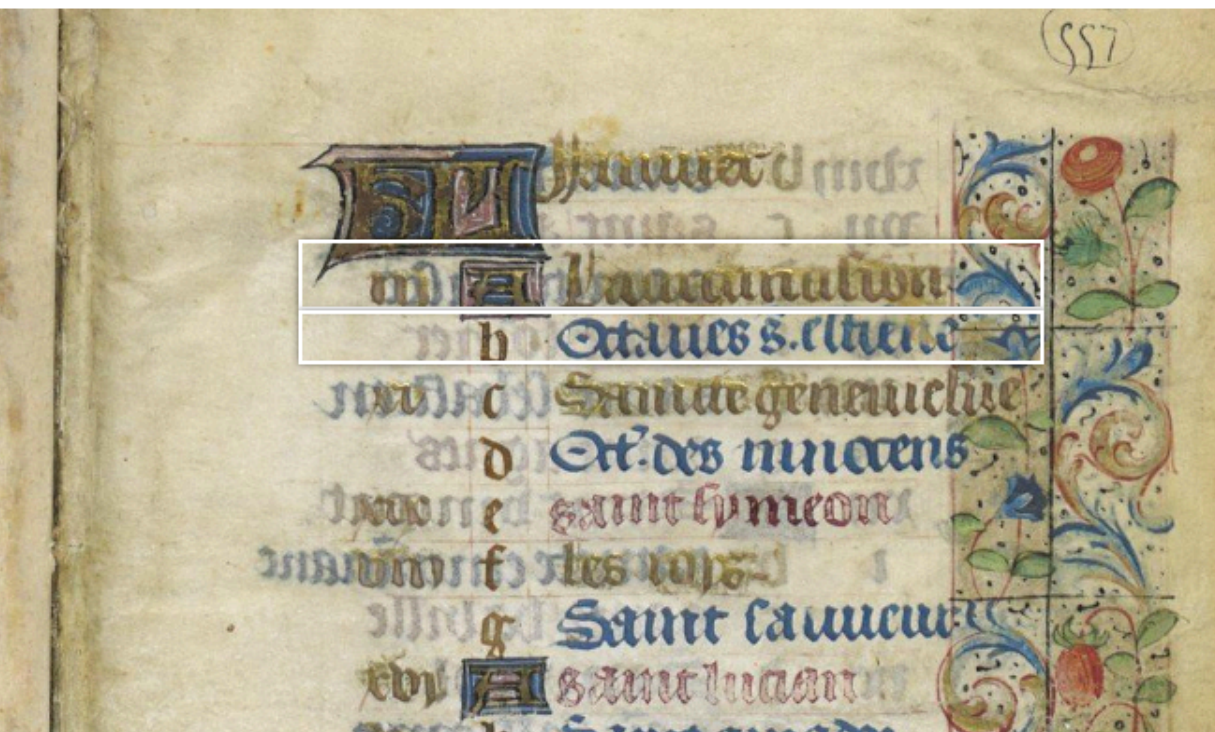 557
KL Januier
A La circuncision
b Octaues s. estiene
c Saincte geneuiefue
d Oct. des innocens
e saint symeon
f les rois
g Saint sauueur
xvi A saint lucian